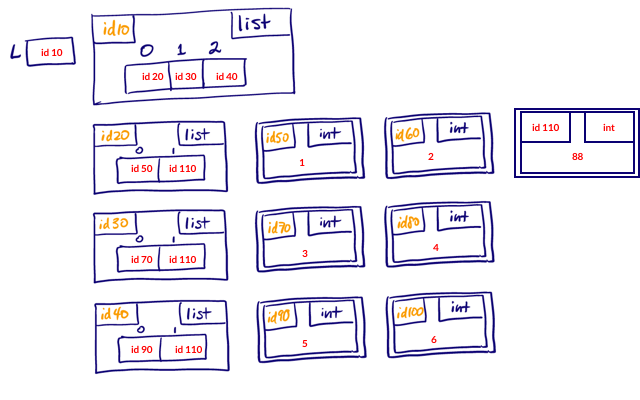 id10 list
0 1 2
L id 10
id 20 id 30 id 40
id20 list
0 1
id 50 id 110
id50 int
1
id60 int
2
id 110 int
88
id30 list
0 1
id 70 id 110
id70 int
3
id80 int
4
id40 list
0 1
id 90 id 110
id90 int
5
id100 int
6